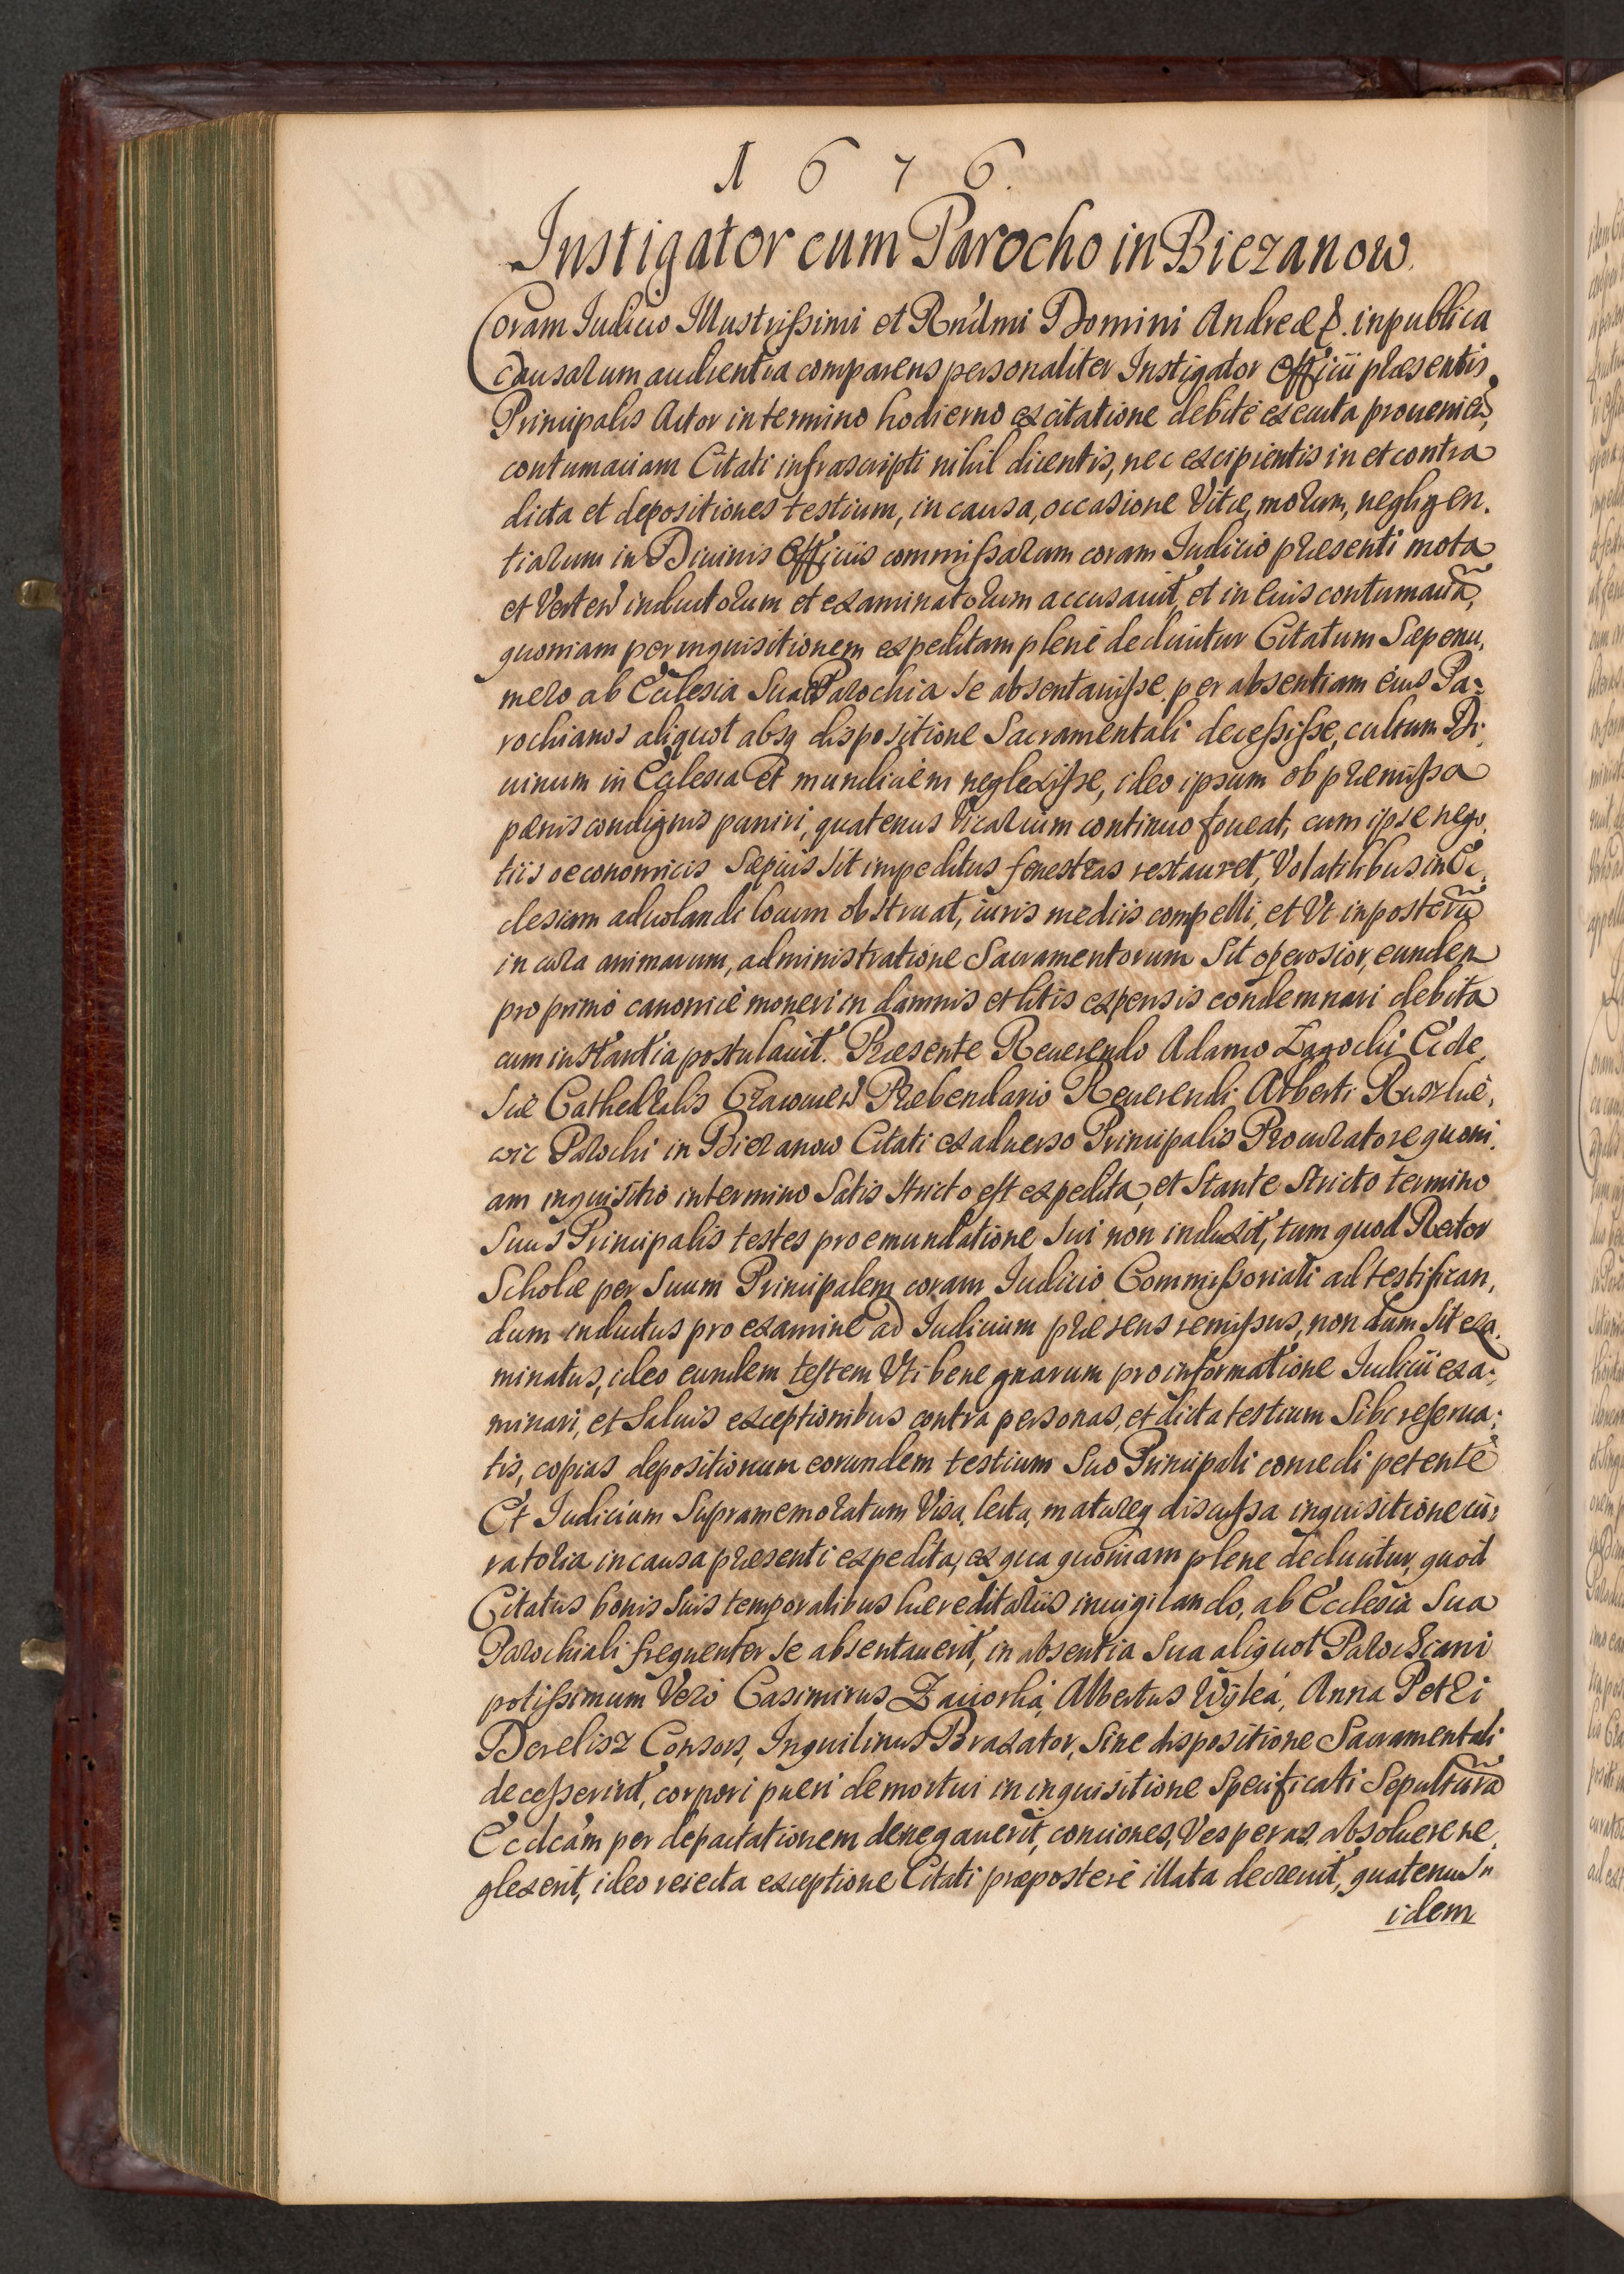 1676.
Instigator cum Parocho in Biezanow.
Coram Iudicio Illustrissimi et Rndmi Domini Andreæ &. in publica
Causarum audientia comparens personaliter Instigator Officii præsentis
Principalis Actor in termino hodierno ex citatione debité executa proueniẽ,
contumaciam Citati infrascripti nihil dicentis, nec excipientis in et contra
dicta et depositiones testium, in causa, occasione Vitæ, morum, negligen.
tiarum in Diuinis Officiis commissarum coram Iudicio præsenti mota
et Verteñ inductorum et examinatorum accusauit, et in eius contumaciã,
quoniam per inquisitionem expeditam plenè deducitur Citatum Sæpenu,
mero ab Ecclesia Sua Parochia se absentauisse. per absentiam eius Pa:
rochianos aliquot absq dispositione Sacramentali decessisse, cultum Di.
uinum in Ecclesia Et mundiciem neglexisse, ideo ipsum ob præmissa
pænis condignis puniri, quatenus Vicarium continuo foueat, cum ipse nego.
tiis oeconomicis Sæpius Sit impeditus fenestras restauret, Volatilibus in Ec.
clesiam aduolandi locum obstruat, iuris mediis compelli, et Vt in posterũ
in cura animarum, administratione Sacramentorum Sit operosior, eundem
pro primò canonicè moneri in damnis et litis expensis condemnari debita
cum instantia postulauit. Præsente Reuerendo Adamo Zagochi Eccle.
siæ Cathedralis Cracouieñ Præbendario Reuerendi Alberti Ruszkie,
wic Parochi in Biezanow Citati ex aduerso Principalis Procuratore quoni.
am inquisitio in termino Satis Stricto est expedita, et Stante Stricto termino
Suus Principalis testes pro emundatione Sui non induxit, tum quod Rector
Scholæ per Suum Principalem coram Iudicio Commissoriali ad testifican,
dum inductus pro examine ad Iudicium præsens remissus, non dum Sit exa.
minatus, ideo eundem testem Vti bene gnarum pro informatione Iudicii exa:
minari, et Saluis exceptionibus contra personas, et dicta testium Sibi reserua:
tis, copias depositionum eorundem testium Suo Principali concedi petente
Et Iudicium Supramemoratum Visa, lecta, matureq discussa inquisitione cu:
ratoria in causa præsenti expedita, ex qua quoniam plene deducitur, quod
Citatus bonis Suis temporalibus hæreditariis inuigilando, ab Ecclesia Sua
Parochiali frequenter Se absentauerit, in absentia Sua aliquot Parochiani
potissimum Verò Casimirus Zauorka, Albertus Wylea, Anna Petri
Derelisz Consors, Inquilinus Braxator, Sine dispositione Sacramentali
decesserint, corpori pueri demortui in inquisitione Specificati Sepulturã
Ecclcam per depactationem denegauerit, conciones, Vesperas absoluere ne,
glexerit, ideo reiecta exceptione Citati præposterè illata decreuit, quatenus
idem